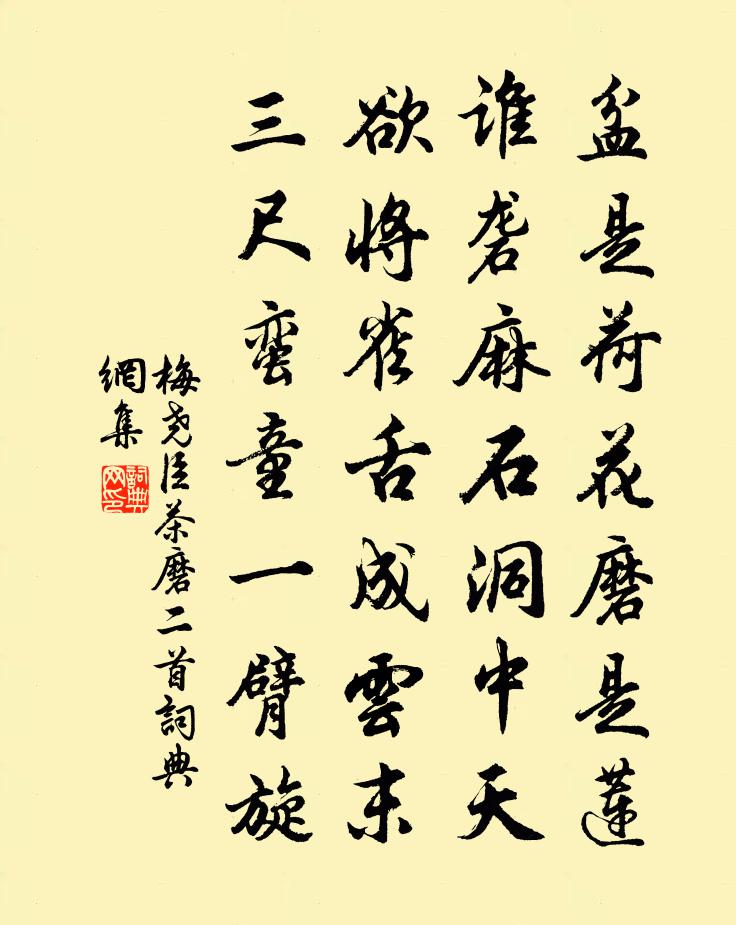 盆是荷花磨是蓮
誰砻麻石洞中天
欲將雀舌成雲末
三尺蛮童一臂旋
梅尧臣茶磨二首詞典
網集
詞典网印